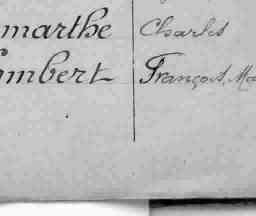 marthe Charles
mbert François, Ma